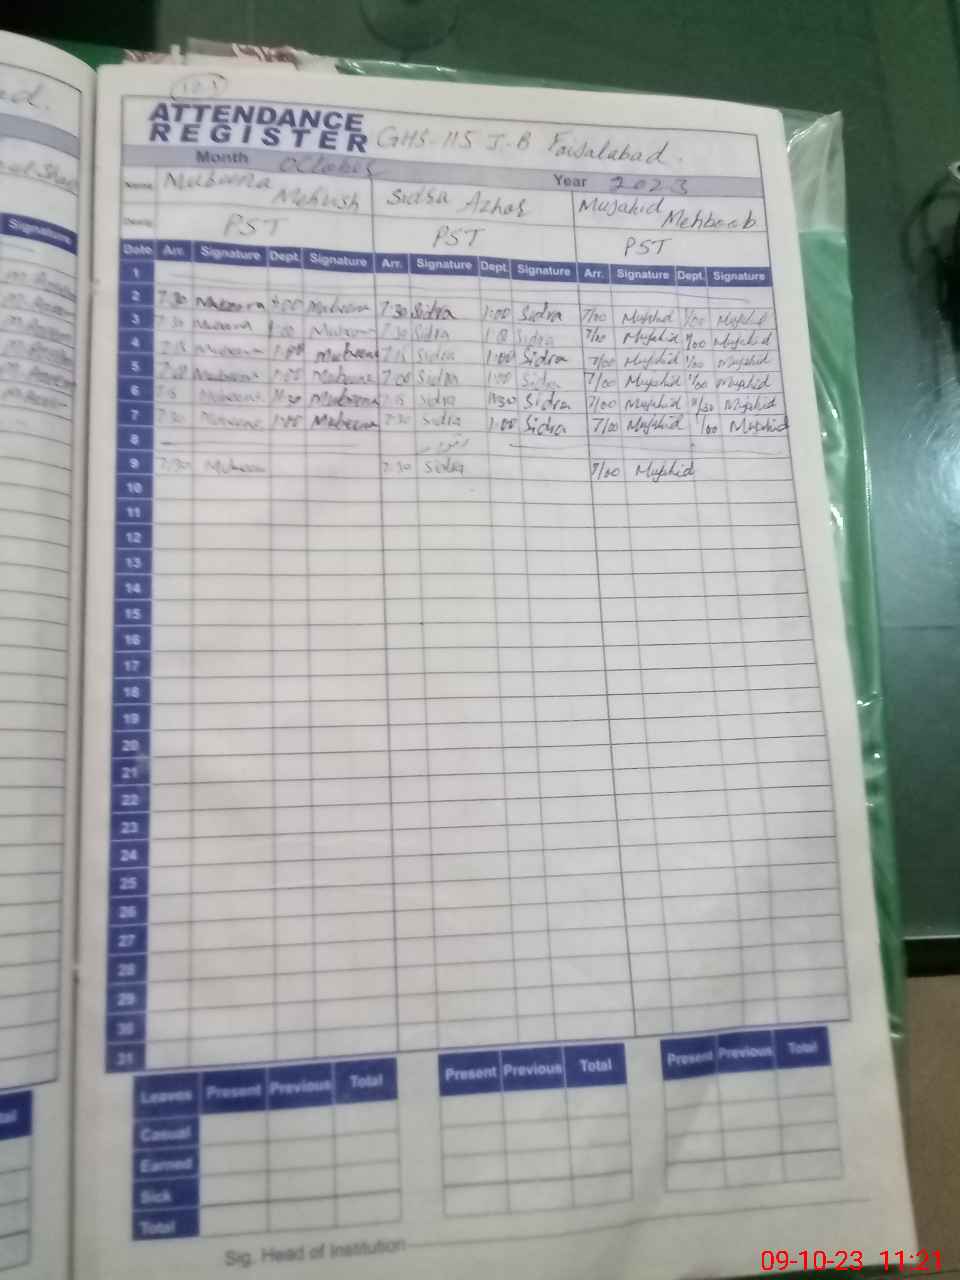 ATTENDANCE
REGISTER GHS-115 J-B Faisalabad.
Month October Year 2023
Name Mubeena Mehwish Sidra Azhar Mujahid Mehboob
PST PST PST
Date Arr. Signature Dept. Signature Arr. Signature Dept. Signature Arr. Signature Dept. Signature
1
2 7:30 Mubeena 1:00 Mubeena 7:30 Sidra 1:00 Sidra 7/00 Mujahid 1/00 Mujahid
3 7:30 Mubeena 1:00 Mubeena 7:30 Sidra Sidra 7/00 Mujahid 1/00 Mujahid
4 7:15 Mubeena 1:00 Mubeena 7:15 Sidra 1:00 Sidra 7/00 Mujahid 1/00 Mujahid
5 7:00 Mubeena 1:00 Mubeena 7:00 Sidra 1:00 Sidra 7/00 Mujahid 1/00 Mujahid
6 7:15 Mubeena 11:30 Mubeena 7:15 Sidra 11:30 Sidra 7/00 Mujahid 11/30 Mujahid
7 7:30 Mubeena 1:00 Mubeena 7:30 Sidra 1:00 Sidra 7/00 Mujahid 1/00 Mujahid
8
9 7:30 Mubeena 7:30 Sidra 7/00 Mujahid
10
11
12
13
14
15
16
17
18
19
20
21
22
23
24
25
26
27
28
29
30
31
Leaves Present Previous Total Present Previous Total Present Previous Total
Casual
Earned
Sick
Total
Sig. Head of Institution
Signature
09-10-23 11:21